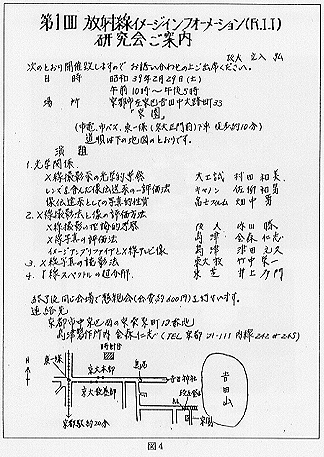 第1回 放射線イメージインフォーメーション(R.I.I)
研究会ご案内
阪大 立入 弘
次のとおり開催致しますのでお誘いあわせの上ご出席ください。
日 時 昭和39年2月29日(土)
午前10時〜午後5時
場 所 京都市左京区吉田中大路町33
「楽園」
(市電、市バス、東一條(京大正門前)下車 徒歩約10分)
道順は下の地図のとおりです。
演 題
1. 光学関係
X線撮影系の光学的考察 大工試 村田和美
レンズを含んだ像伝達系の一評価法 キヤノン 佐柳和男
像伝達系としての写真的性質 富士フィルム 畑中勇
2. X線撮影法と像の評価方法
X線撮影の理論的考察 阪大
X線写真の評価法 島津 金森仁志
イメージアンプリファイアとX線テレビ像 島津
3. X線写真の撮影法 東大 竹中栄一
4. X線スペクトルの違分解 東芝 井上多門
終了後同じ会場で懇親会(会費約600円)を行います。
連絡先
京都市中京区
島津製作所内 金森仁志 (TEL 京都 21-1111 内線242 or 245)
東一條
京大本部
京大教養部
吉田神社
吉田山
楽園
京都駅約20分
図4